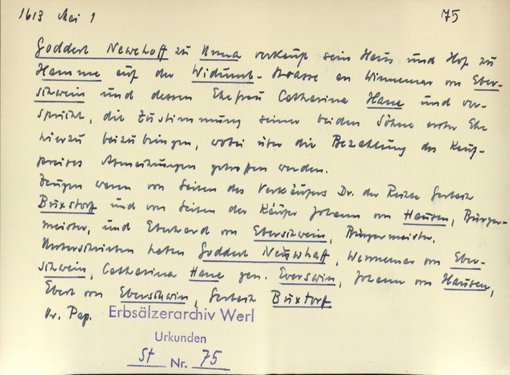 1613 Mai 1
75
Goddert Newehoff zu Unna verkauft sein Haus und Hof zu
Hamme auf der Widumb-Strasse an Winnemar von Ever-
schwein und dessen Ehefrau Catharina Hane und ver-
spricht, die Zustimmung seiner beiden Söhne erster Ehe
hierzu beizubringen, wobei über die Bezahlung des Kauf-
preises Abmachungen getroffen werden.
Zeugen waren von Seiten des Verkäufers Dr. der Rechte Gerhard
Buxtorf und von Seiten der Käufer Johann von Hausen, Bürger-
meister, und Eberhard von Eberschwein, Bürgermeister.
Unterschrieben haben Goddert Neuwhaff, Winnemar von Eber-
schwein, Catharina Hane gen. Everswin, Johann von Hausen,
Ebert von Eberschwin, Gerhard Buxtorf
Or. Pap.
Erbsälzerarchiv Werl
Urkunden
St Nr. 75